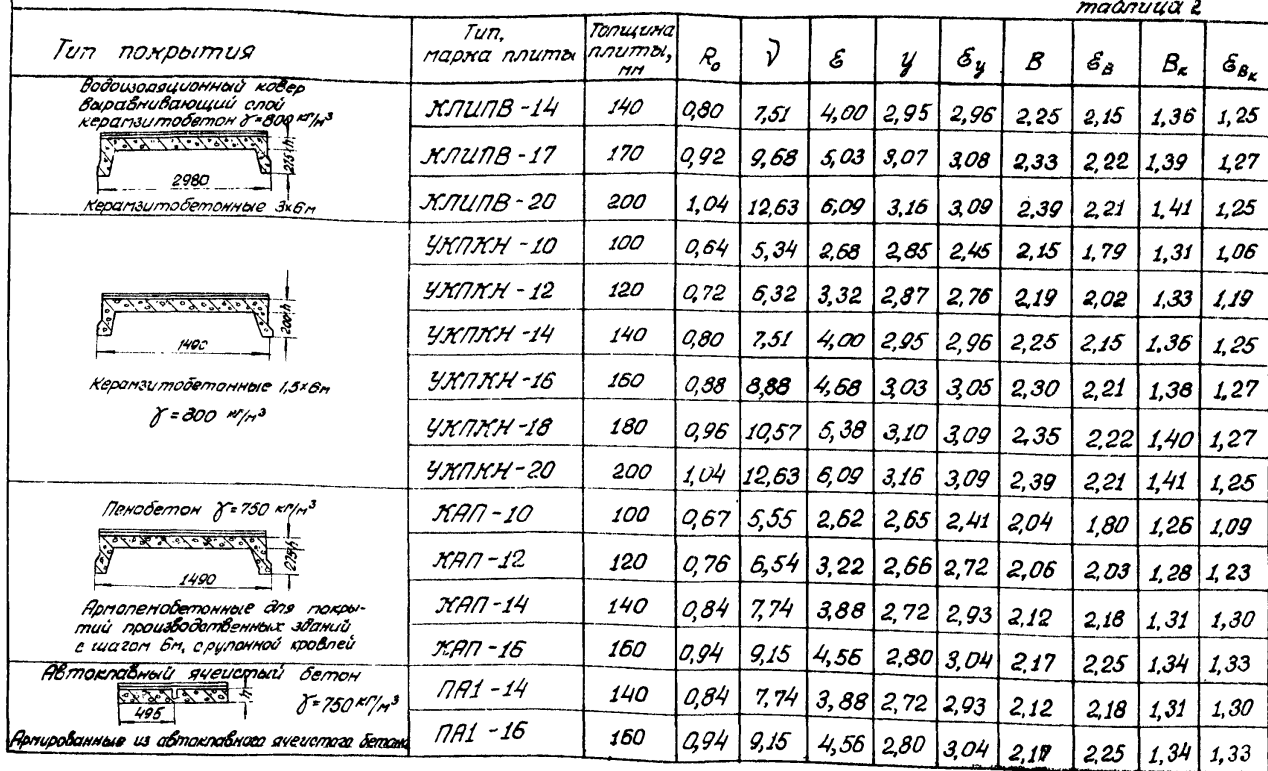 таблица 2
Тип покрытия
Тип, марка плиты
Толщина плиты, мм
R₀ ν ε y ε_y B ε_B B_к ε_Bк
Водоизоляционный ковер
выравнивающий слой
керамзитобетон γ=800 кг/м³
275 h
2980
Керамзитобетонные 3х6м
КЛИПВ-14 140 0,80 7,51 4,00 2,95 2,96 2,25 2,15 1,36 1,25
КЛИПВ-17 170 0,92 9,68 5,03 3,07 3,08 2,33 2,22 1,39 1,27
КЛИПВ-20 200 1,04 12,63 6,09 3,16 3,09 2,39 2,21 1,41 1,25
200 h
1490
Керамзитобетонные 1,5х6м
γ=800 кг/м³
УКПКН-10 100 0,64 5,34 2,68 2,85 2,45 2,15 1,79 1,31 1,06
УКПКН-12 120 0,72 6,32 3,32 2,87 2,76 2,19 2,02 1,33 1,19
УКПКН-14 140 0,80 7,51 4,00 2,95 2,96 2,25 2,15 1,36 1,25
УКПКН-16 160 0,88 8,88 4,68 3,03 3,05 2,30 2,21 1,38 1,27
УКПКН-18 180 0,96 10,57 5,38 3,10 3,09 2,35 2,22 1,40 1,27
УКПКН-20 200 1,04 12,63 6,09 3,16 3,09 2,39 2,21 1,41 1,25
Пенобетон γ=750 кг/м³
275 h
1490
Армопенобетонные для покры-
тий производственных зданий
с шагом 6м, с рулонной кровлей
КАП-10 100 0,67 5,55 2,62 2,65 2,41 2,04 1,80 1,26 1,09
КАП-12 120 0,76 6,54 3,22 2,66 2,72 2,06 2,03 1,28 1,23
КАП-14 140 0,84 7,74 3,88 2,72 2,93 2,12 2,18 1,31 1,30
КАП-16 160 0,94 9,15 4,56 2,80 3,04 2,17 2,25 1,34 1,33
Автоклавный ячеистый бетон
γ=750 кг/м³
h
495
Армированные из автоклавного ячеистого бетона
ПА1-14 140 0,84 7,74 3,88 2,72 2,93 2,12 2,18 1,31 1,30
ПА1-16 160 0,94 9,15 4,56 2,80 3,04 2,17 2,25 1,34 1,33